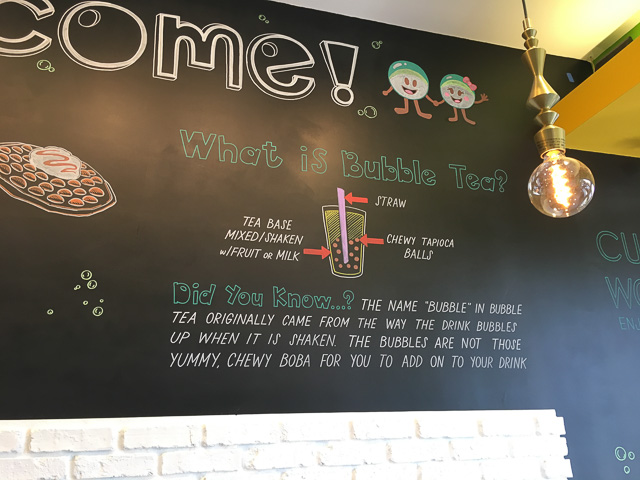 come!
What is Bubble Tea?
STRAW
TEA BASE
MIXED/SHAKEN
w/FRUIT or MILK
CHEWY TAPIOCA
BALLS
Did You Know...? THE NAME "BUBBLE" IN BUBBLE
TEA ORIGINALLY CAME FROM THE WAY THE DRINK BUBBLES
UP WHEN IT IS SHAKEN. THE BUBBLES ARE NOT THOSE
YUMMY, CHEWY BOBA FOR YOU TO ADD ON TO YOUR DRINK
CU
WO
ENJ